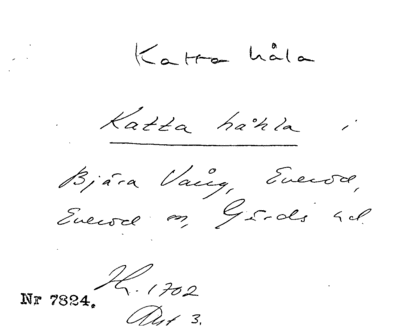 Katta håla
Katta håhla i
Bjära Vång, Everöd,
Everöd sn, Gärds hd.
Hh. 1702
Nr 7824.
Akt 3.